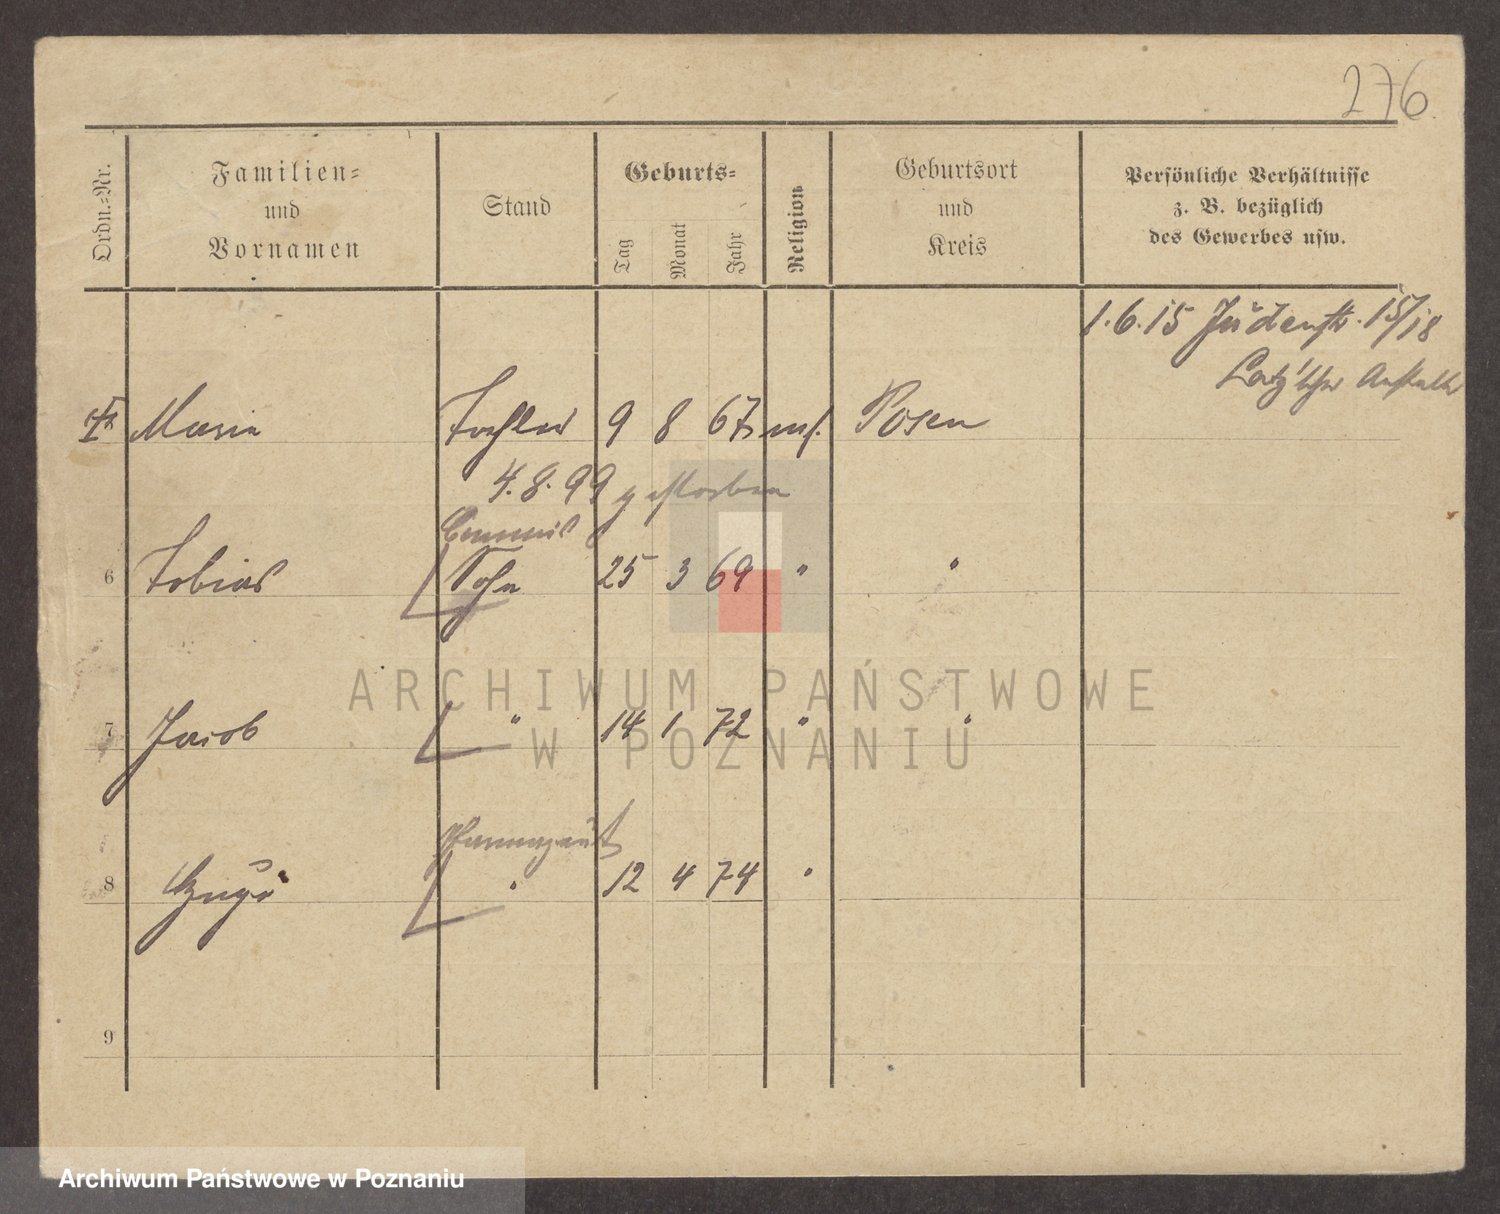 276
Ordn.-Nr.
Familien-
und
Vornamen
Stand
Geburts-
Tag
Monat
Jahr
Religion
Geburtsort
und
Kreis
Persönliche Verhältnisse
z. B. bezüglich
des Gewerbes usw.
1.6.15 Judenstr. 15/18
Latz'sche Anstalt
Maria Tochter 9 8 67 Posen
4.8.99 gestorben
Commis
6 Tobias Sohn 25 3 69 " "
7 Jacob " 14 1 72 " "
Pharmazeut
8 Hugo " 12 4 74 "
9
ARCHIWUM PAŃSTWOWE
W POZNANIU
Archiwum Państwowe w Poznaniu